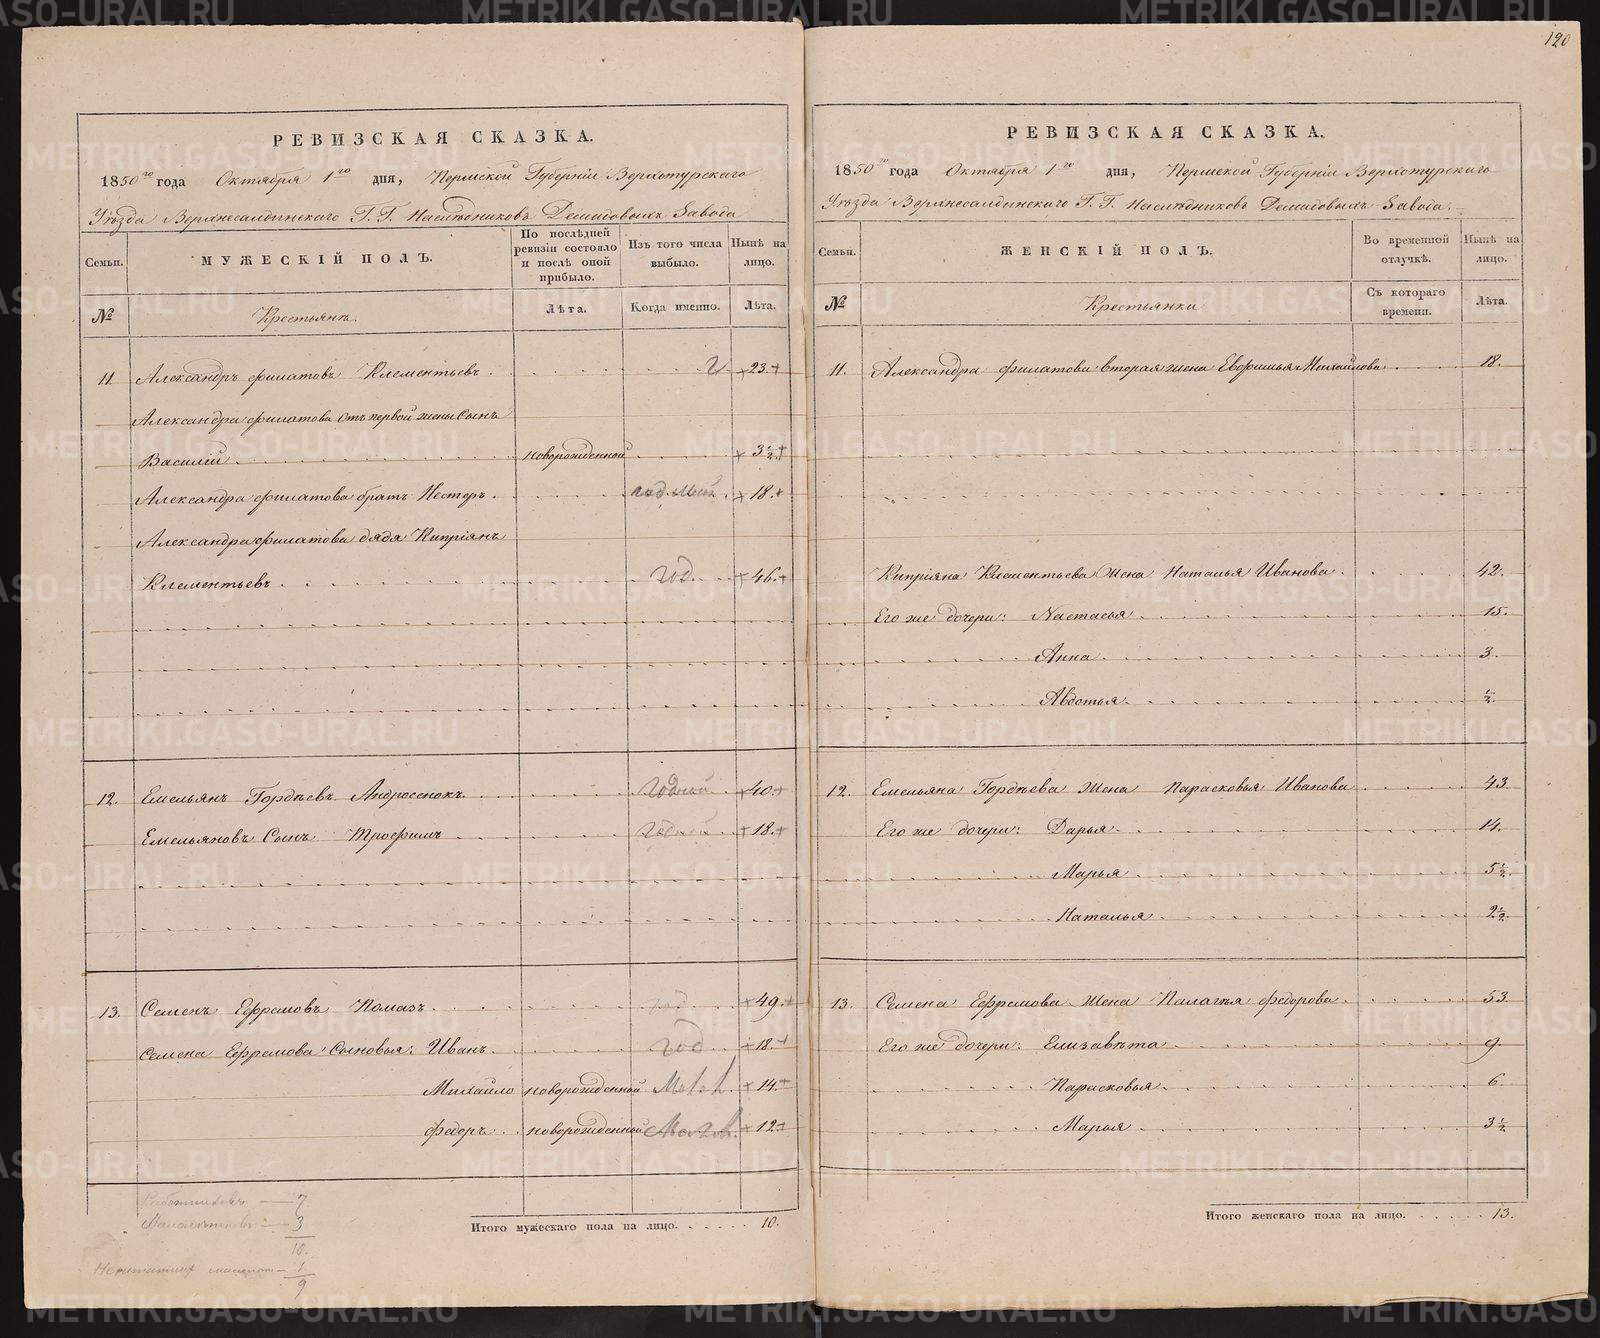 120
РЕВИЗСКАЯ СКАЗКА.
1850го года Октября 1го дня, Пермской Губерніи Верхотурскаго
Уѣзда Верхнесалдинскаго Г. Г. Наслѣдниковъ Демидовыхъ Завода
Семьи.
МУЖЕСКІЙ ПОЛЪ.
По послѣдней ревизіи состояло и послѣ оной прибыло.
Изъ того числа выбыло.
Нынѣ на лицо.
№
Крестьянъ.
Лѣта.
Когда именно.
Лѣта.
11. Александръ Филатовъ Клементьевъ 23.
Александра Филатова отъ первой жены Сынъ
Василій новорожденной 3 1/2
Александра Филатова братъ Несторъ 18.
Александра Филатова дядя Кипріянъ
Клементьевъ год 46.
12. Емельянъ Гордѣевъ Андросенокъ годной 40.
Емельяновъ Сынъ Трофимъ годной 18.
13. Семенъ Ефремовъ Помазъ год 49.
Семена Ефремова Сыновья: Иванъ год 18.
Михайло новорожденной 14
Федоръ новорожденной 12
Итого мужескаго пола на лицо. 10.
Работниковъ — 7
Малолѣтковъ — 3
10.
1
9
РЕВИЗСКАЯ СКАЗКА.
1850го года Октября 1го дня, Пермской Губерніи Верхотурскаго
Уѣзда Верхнесалдинскаго Г. Г. Наслѣдниковъ Демидовыхъ Завода.
Семьи.
ЖЕНСКІЙ ПОЛЪ.
Во временной отлучкѣ.
Нынѣ на лицо.
№
Крестьянки
Съ котораго времени.
Лѣта.
11. Александра Филатова вторая жена Евфимья Михайлова 18.
Кипріяна Клементьева Жена Наталья Иванова 42.
Его же дочери: Настасья 15.
Анна 3.
Авдотья 1/2.
12. Емельяна Гордѣева Жена Парасковья Иванова 43
Его же дочери: Дарья 14.
Марья 5 1/2.
Наталья 2 1/2.
13. Семена Ефремова Жена Палагѣя Федорова 53
Его же дочери: Елизавѣта 9.
Парасковья 6.
Марья 3 1/2
Итого женскаго пола на лицо. 13.
METRIKI.GASO-URAL.RU